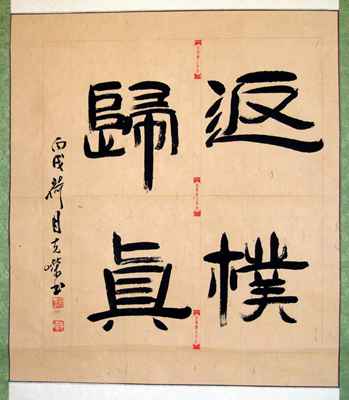 返樸
歸真
丙戌荷月克榮書